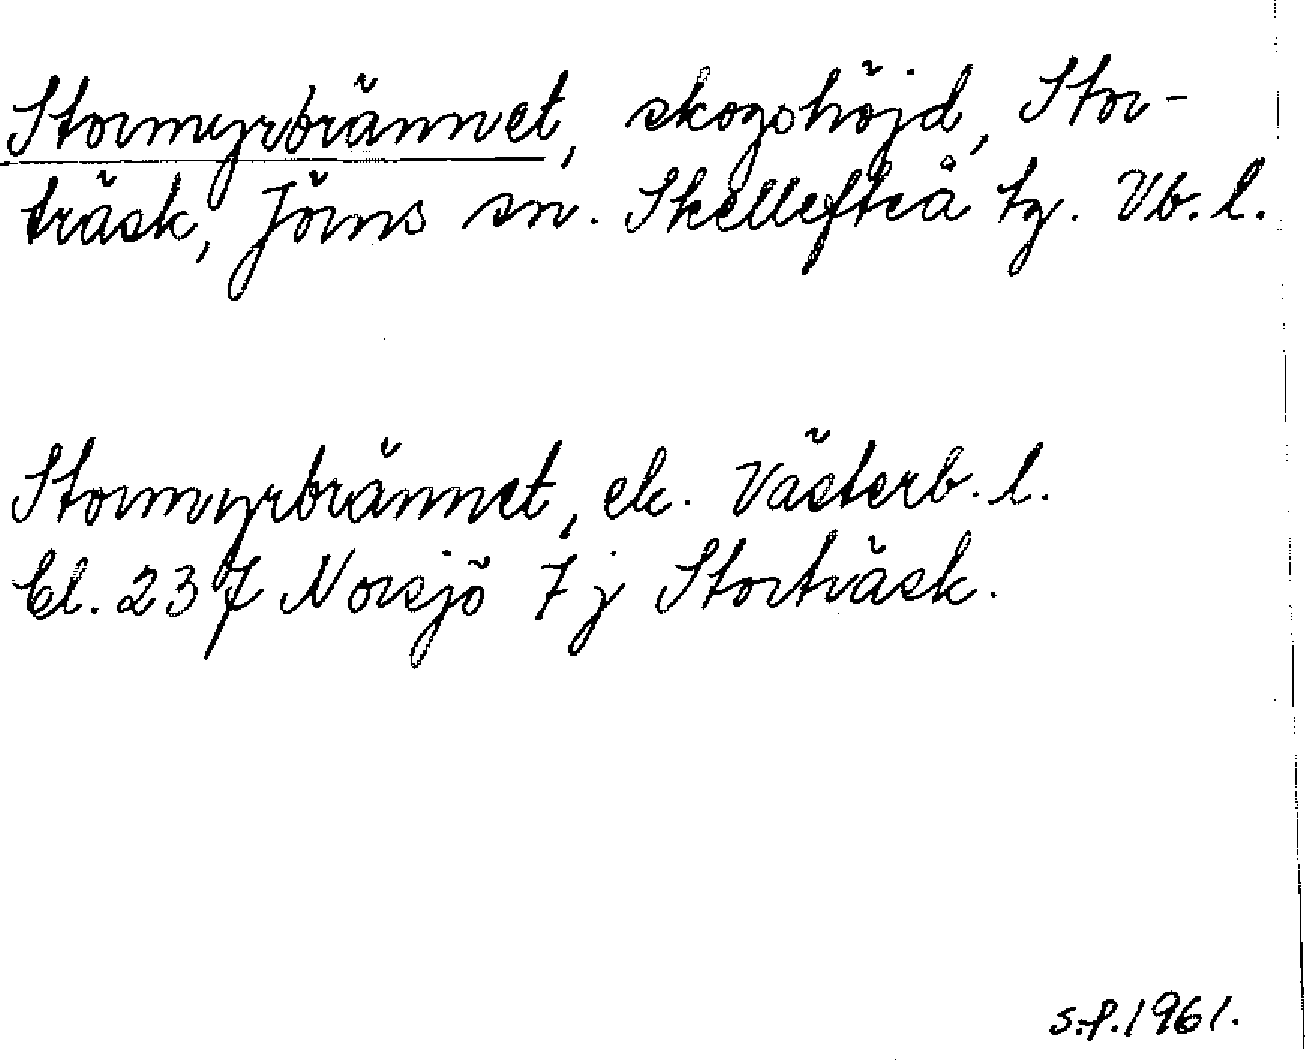 Stormyrbrännet, skogshöjd, Stor-
träsk, Jörns sn. Skellefteå tg. Vb. l.
Stormyrbrännet, ek. Västerb. l.
Bl. 237 Norsjö 7 j Storträsk.
S.f. 1961.